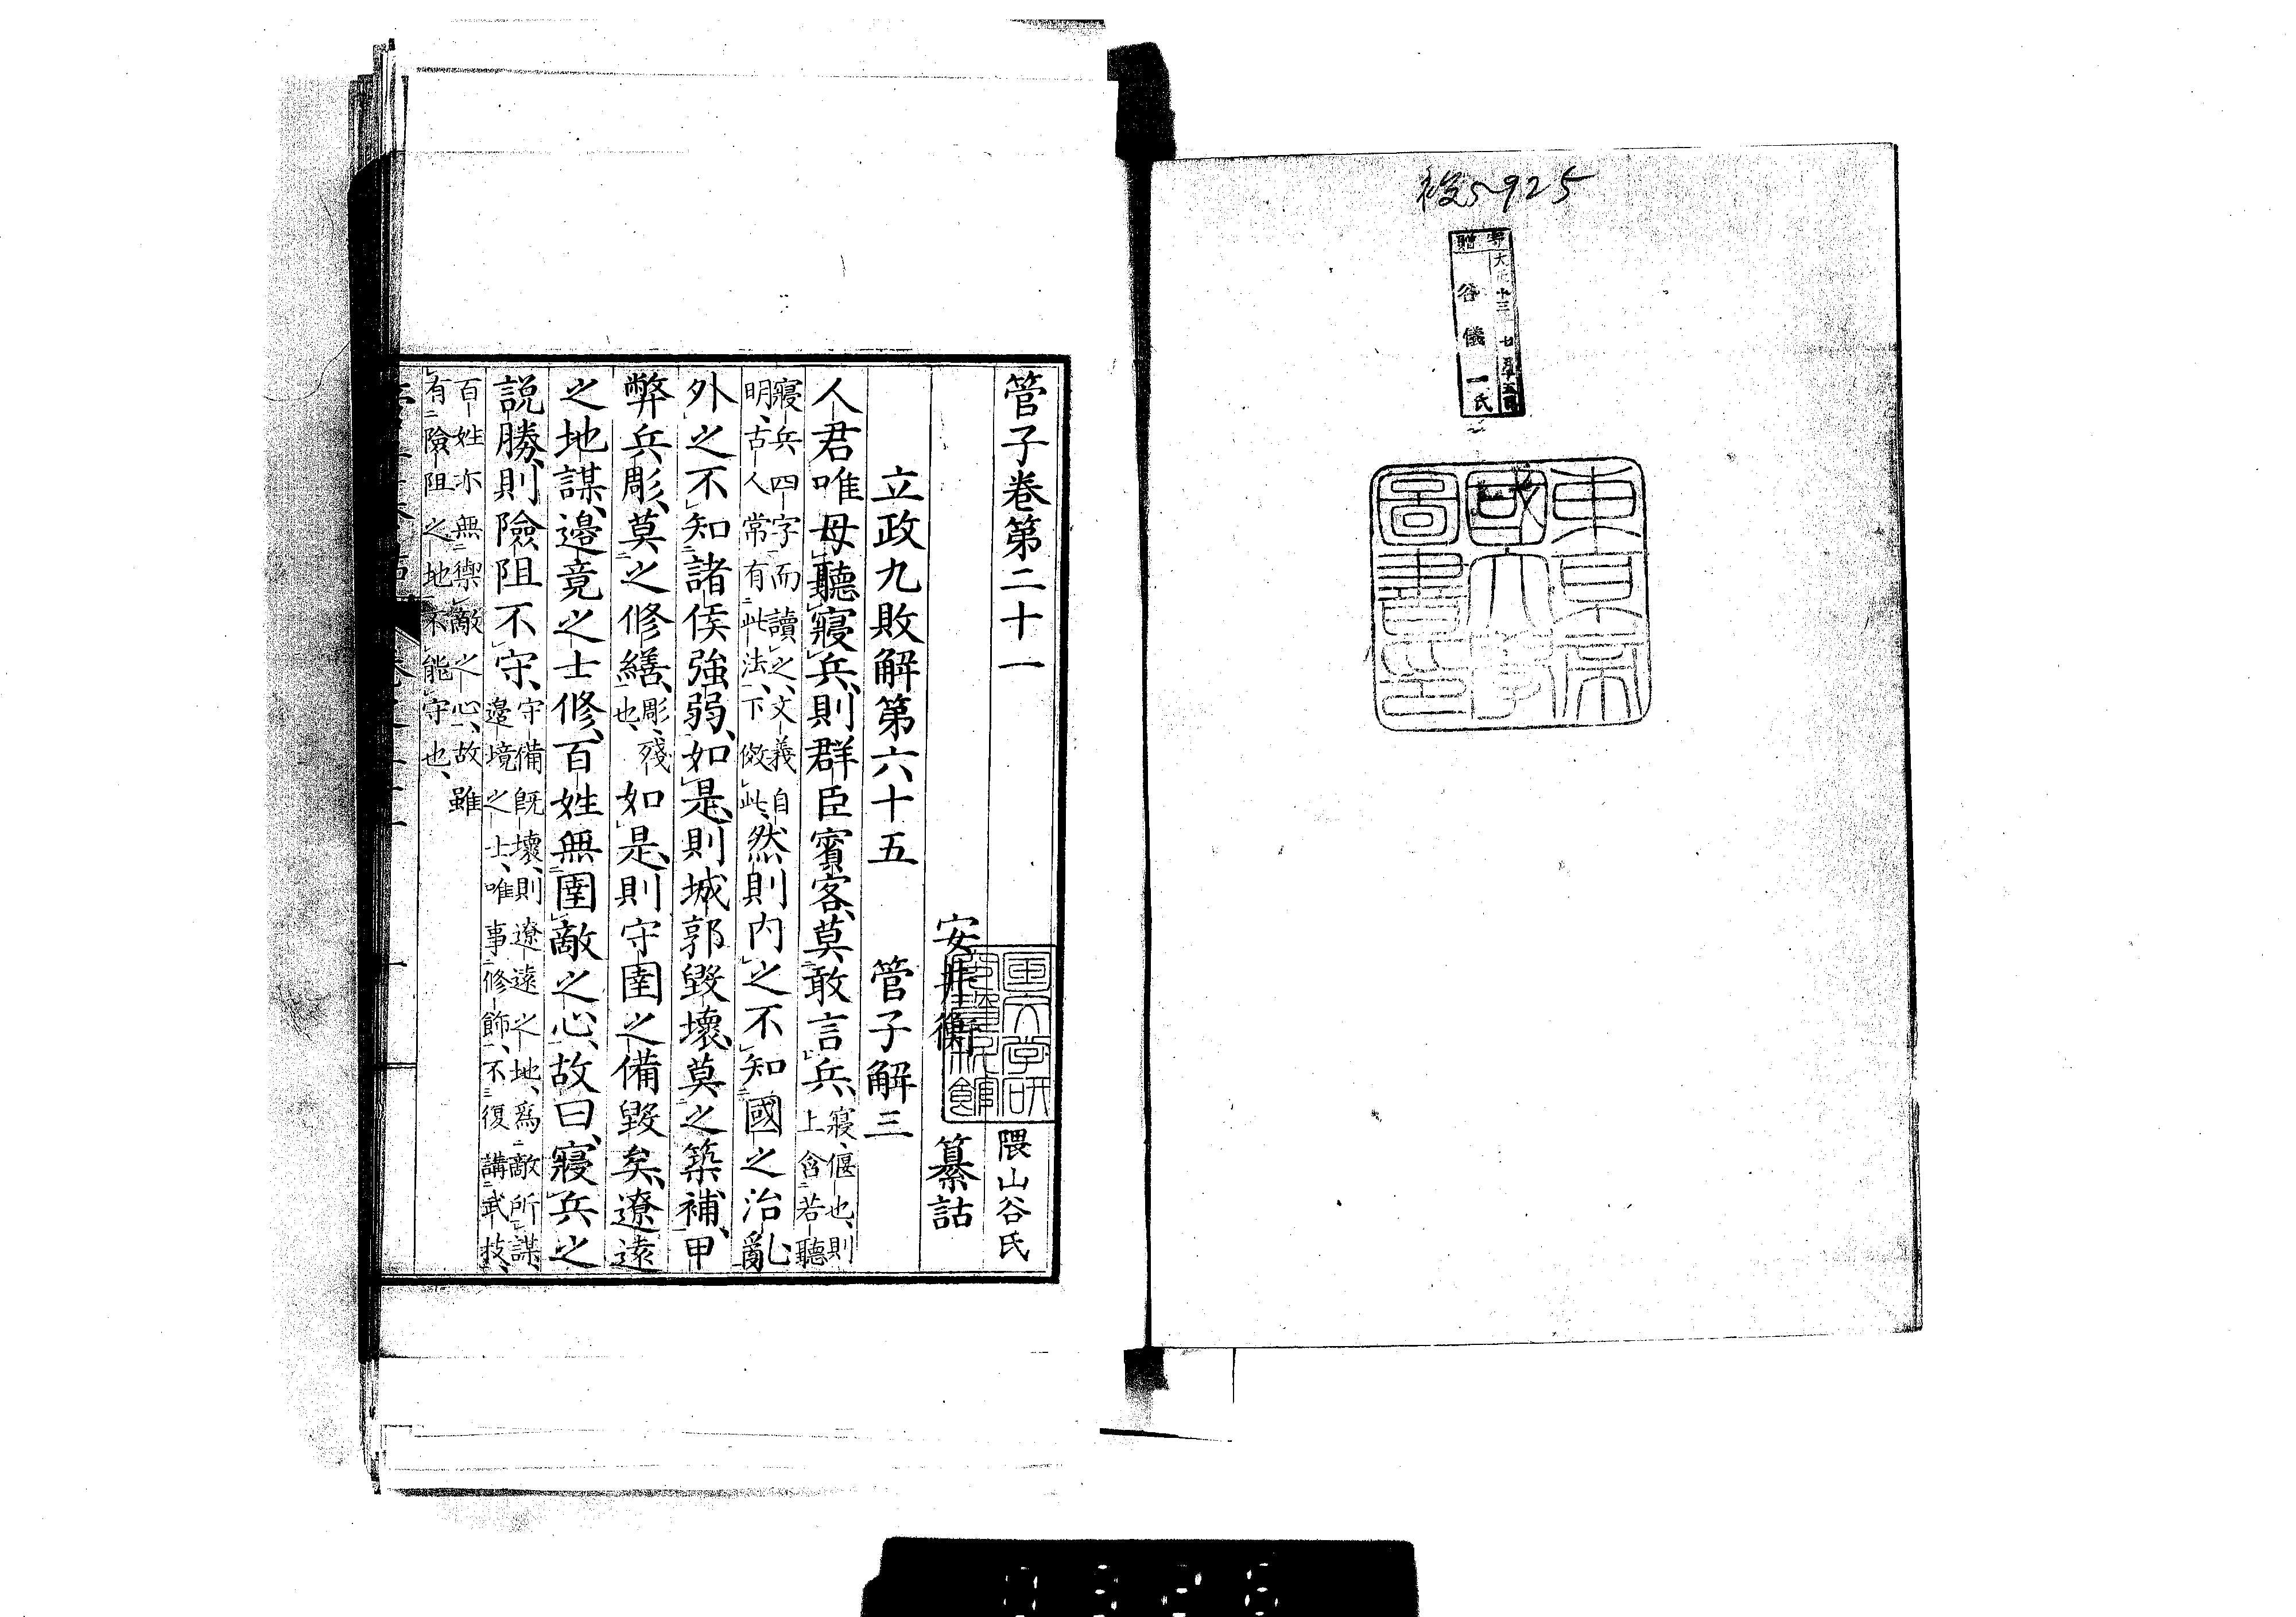 5925
寄贈
大正十三
谷儀一氏
東京帝
國大學
圖書印
管子卷第二十一
隈山谷氏
安井衡纂詁
立政九敗解第六十五　管子解三
人君唯毋聽寢兵、則群臣賓客、莫敢言兵、
寢、偃也、則
上含若聽
寢兵四字而讀之、文義自
明、古人常有此法、下倣此、
然則内之不知國之治亂
外之不知諸侯強弱、如是、則城郭毀壞、莫之築補、甲
弊兵彫、莫之修繕、
彫、殘
也、
如是、則守圉之備毀矣、遼遠
之地謀、邊竟之士修、百姓無圉敵之心、故曰、寢兵之
說勝、則險阻不守、
守備既壞、則遼遠之地、爲敵所謀、
邊境之士、唯事修飾、不復講武技、
百姓亦無禦敵之心、故雖
有險阻之地、不能守也、